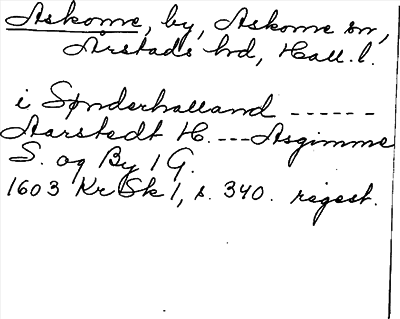 Askome, by, Askome sn,
Årstads hd, Hall. l.
i Sønderhalland ------
Aarstedt H. --- Asgimme
S. og By 1 G.
1603 KrSk 1, s. 340. regest.